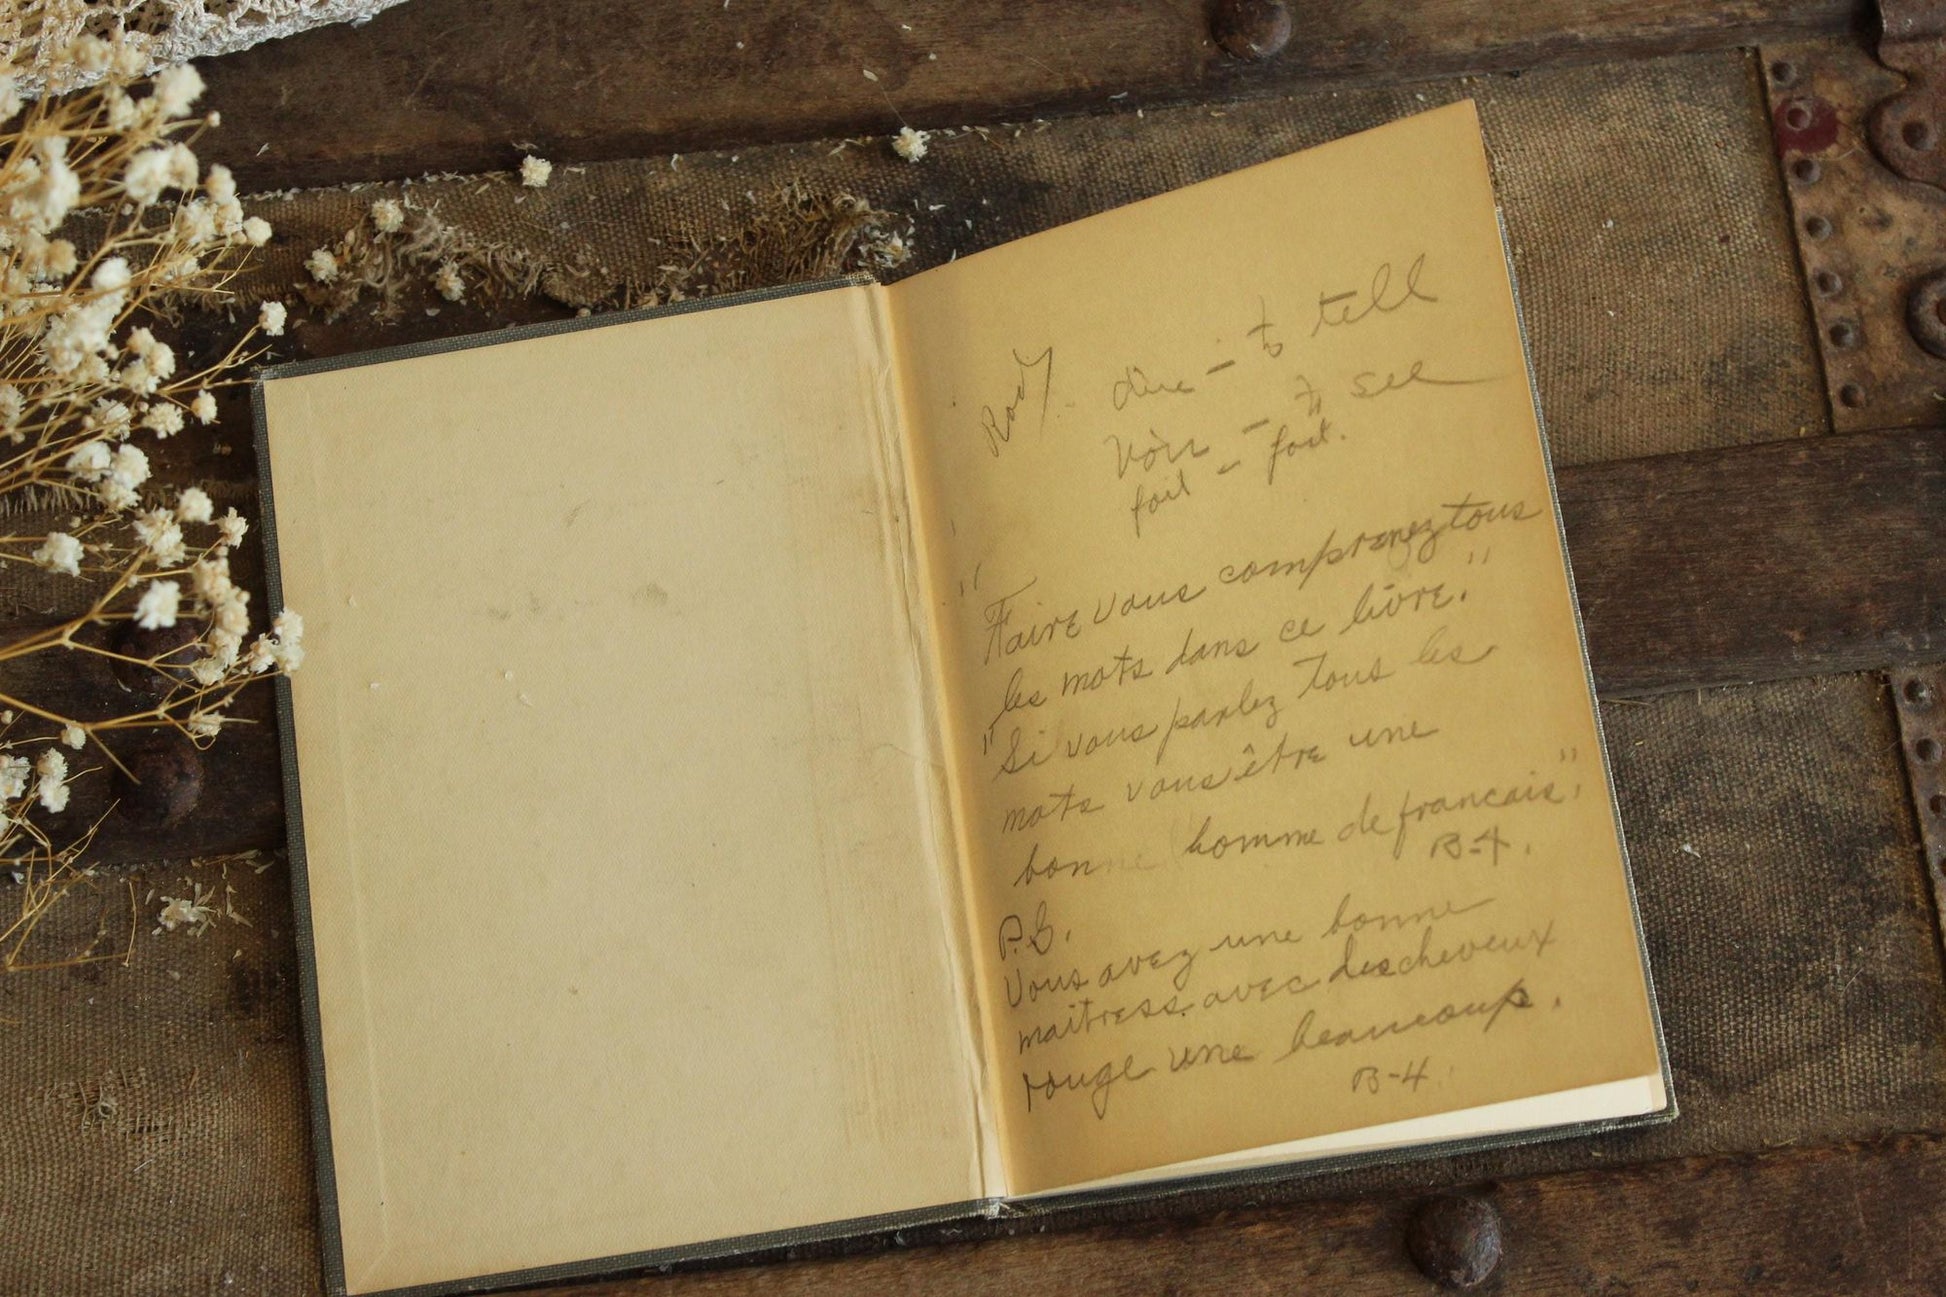 dire - to tell
Rody.
Voir - to see
fait - fait.
"Faire vous comprenez tous
les mots dans ce livre."
"Si vous parlez tous les
mots vous être une
bonne homme de francais".
B-4.
P.S.
Vous avez une bonne
maitress. avec des cheveux
rouge une beaucoup.
B-4.